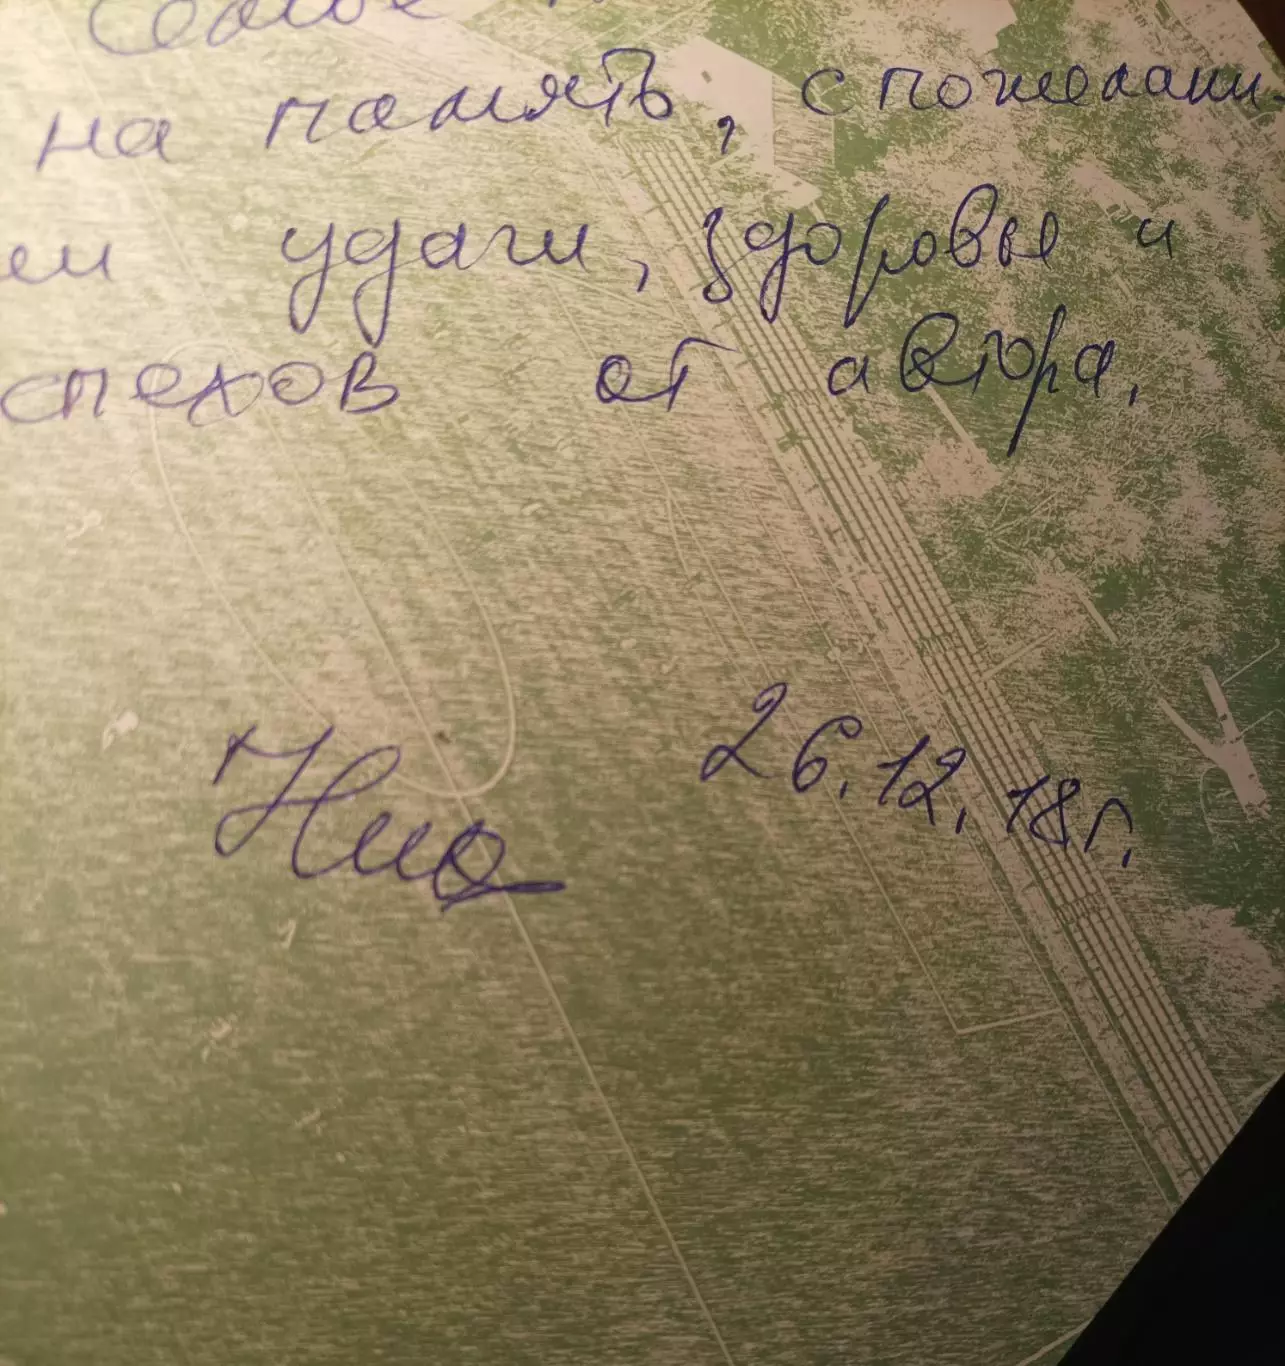 на память, с пожелани-
ем удачи, здоровье и
спехов от автора,
26.12.18г.